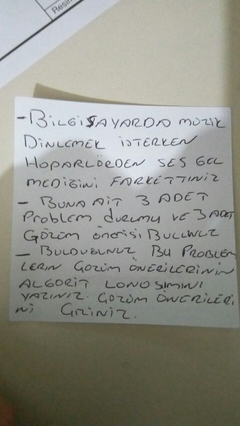 Resim
- BİLGİSAYARDA MÜZİK
DİNLEMEK İSTERKEN
HOPARLÖRDEN SES GEL
MEDİĞİNİ FARKETTİNİZ
- BUNA AİT 3 ADET
Problem durumu VE 3 ADET
Gözüm önerisi BULUNUZ
- BULDUĞUNUZ BU PROBLEM
LERİN GÖZÜM ÖNERİLERİNİN
ALGORİT LONOSIMINI
YAZINIZ. GÖZÜM ÖNERİLERİ
Nİ ÇİZİNİZ.